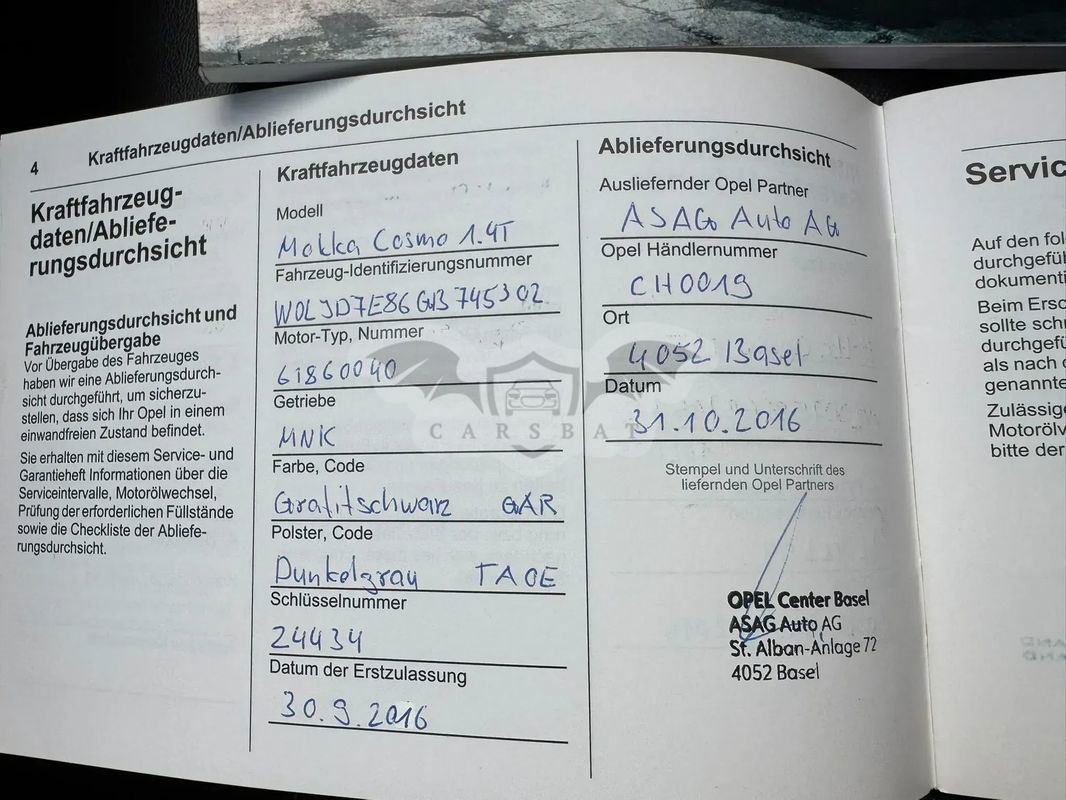 4 Kraftfahrzeugdaten/Ablieferungsdurchsicht
Kraftfahrzeug-
daten/Abliefe-
rungsdurchsicht
Ablieferungsdurchsicht und
Fahrzeugübergabe
Vor Übergabe des Fahrzeuges
haben wir eine Ablieferungsdurch-
sicht durchgeführt, um sicherzu-
stellen, dass sich Ihr Opel in einem
einwandfreien Zustand befindet.
Sie erhalten mit diesem Service- und
Garantieheft Informationen über die
Serviceintervalle, Motorölwechsel,
Prüfung der erforderlichen Füllstände
sowie die Checkliste der Abliefe-
rungsdurchsicht.
Kraftfahrzeugdaten
Modell
Mokka Cosmo 1.4T
Fahrzeug-Identifizierungsnummer
W0LJD7E86GB745302
Motor-Typ, Nummer
61860040
Getriebe
MNK
Farbe, Code
Grafitschwarz GAR
Polster, Code
Dunkelgrau TAOE
Schlüsselnummer
24434
Datum der Erstzulassung
30.9.2016
Ablieferungsdurchsicht
Ausliefernder Opel Partner
ASAG Auto AG
Opel Händlernummer
CH0019
Ort
4052 Basel
Datum
31.10.2016
Stempel und Unterschrift des
liefernden Opel Partners
OPEL Center Basel
ASAG Auto AG
St. Alban-Anlage 72
4052 Basel
CARSBAT
Servic
Auf den fol
durchgefüh
dokumenti
Beim Ersc
sollte sch
durchgefü
als nach
genannte
Zulässig
Motorölv
bitte der